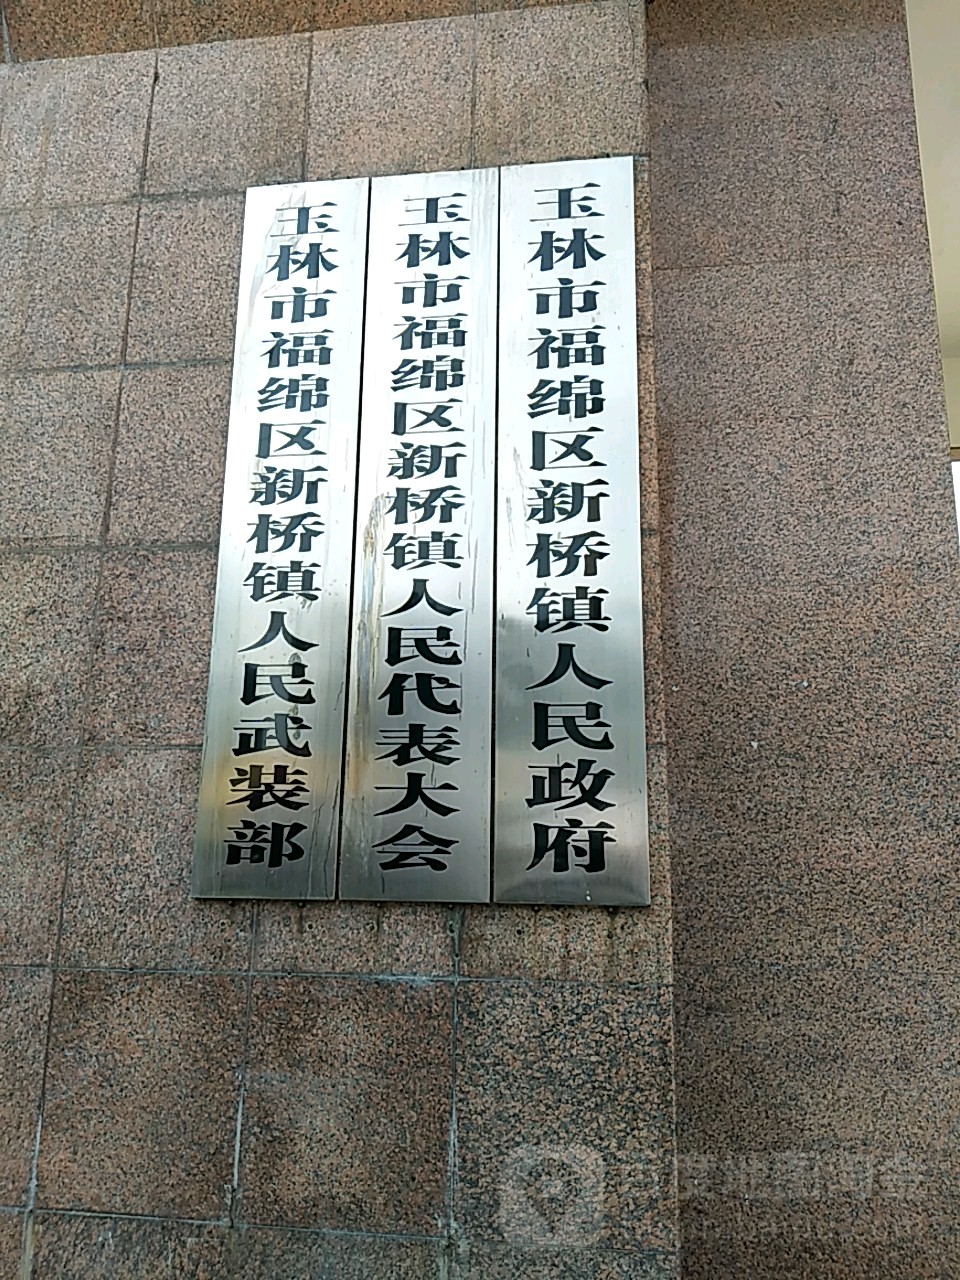 玉林市福绵区新桥镇人民政府
玉林市福绵区新桥镇人民代表大会
玉林市福绵区新桥镇人民武装部